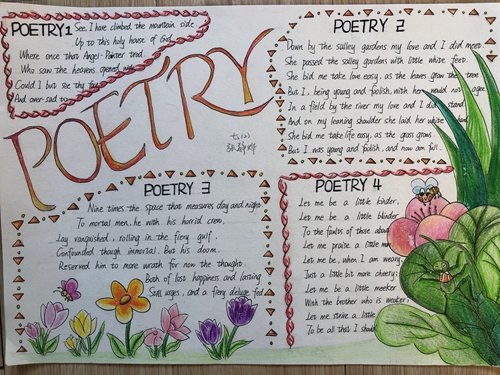 POETRY1
See, I have climbed the mountain side
Up to this holy house of God,
Where once that Angel-Painter trod
Who saw the heavens opened
Could I but see thy
And over sad
POETRY
POETRY 2
Down by the salley gardens my love and I did meet
She passed the salley gardens with little white feet
She bid me take love easy, as the leaves grow the tree
But I, being young and foolish, with her would not agree
In a field by the river my love and I did stand
And on my leaning shoulder she laid her white
She bid me take life easy, as the grass grows
But I was young and foolish, and now am full
POETRY 3
Nine times the space that measures day and night
To mortal men, he with his horrid crew,
Lay vanquished, rolling in the fiery gulf,
Confounded though immortal. But his doom
Reserved him to more wrath for now the thought
Both of lost happiness and lasting
Still urges, and a fiery deluge, fed
POETRY 4
Let me be a little kinder,
Let me be a little blinder
To the faults of those about
Let me praise a little
Let me be, when I am weary,
Just a little bit more cheery;
Let me be a little meeker
With the brother who is weaker,
Let me strive a little
To be all that I should